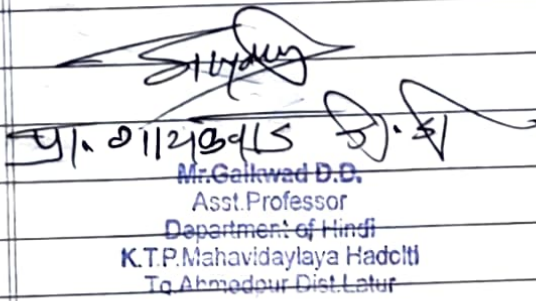 प्रा. गायकवाड डी. डी
Mr.Gaikwad D.D.
Asst.Professor
Department of Hindi
K.T.P.Mahavidaylaya Hadolti
Tq.Ahmedpur Dist.Latur